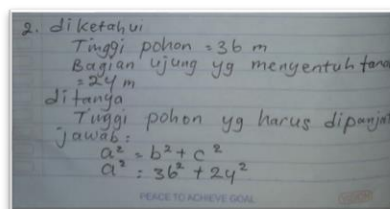 2. diketahui
Tinggi pohon = 36 m
Bagian ujung yg menyentuh tana
= 24 m
ditanya
Tinggi pohon yg harus dipanjat
jawab:
a² = b² + c²
a² = 36² + 24²
PEACE TO ACHIEVE GOAL